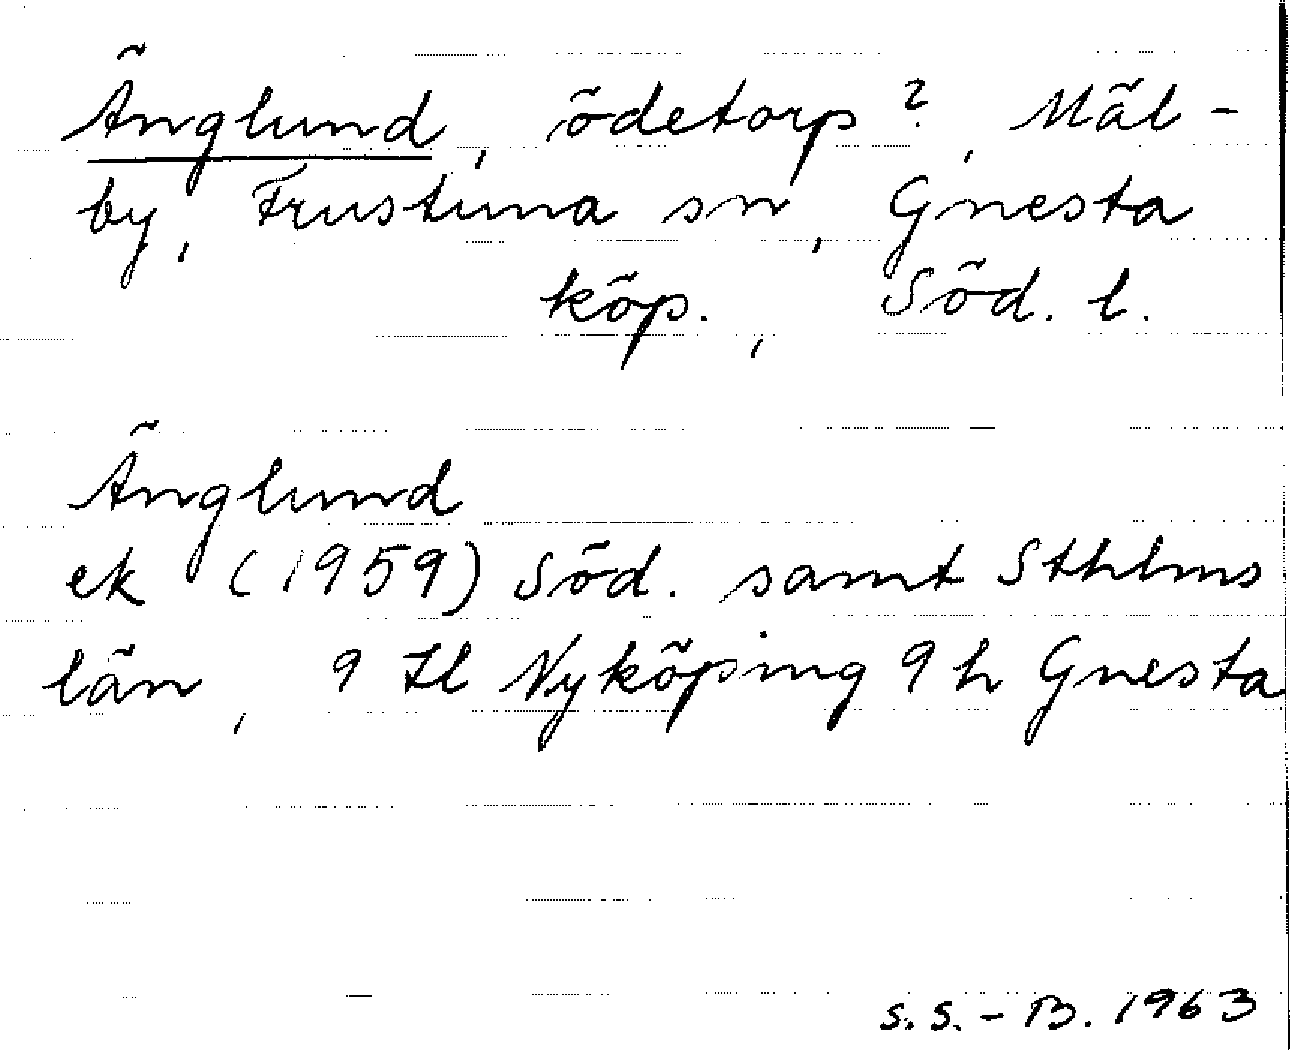 Änglund, ödetorp?, Mäl-
by, Frustuna sn, Gnesta
köp., Söd. l.
Änglund
ek (1959) Söd. samt Sthlms
län, 9 Il Nyköping 9 h Gnesta
S.S.-B. 1963